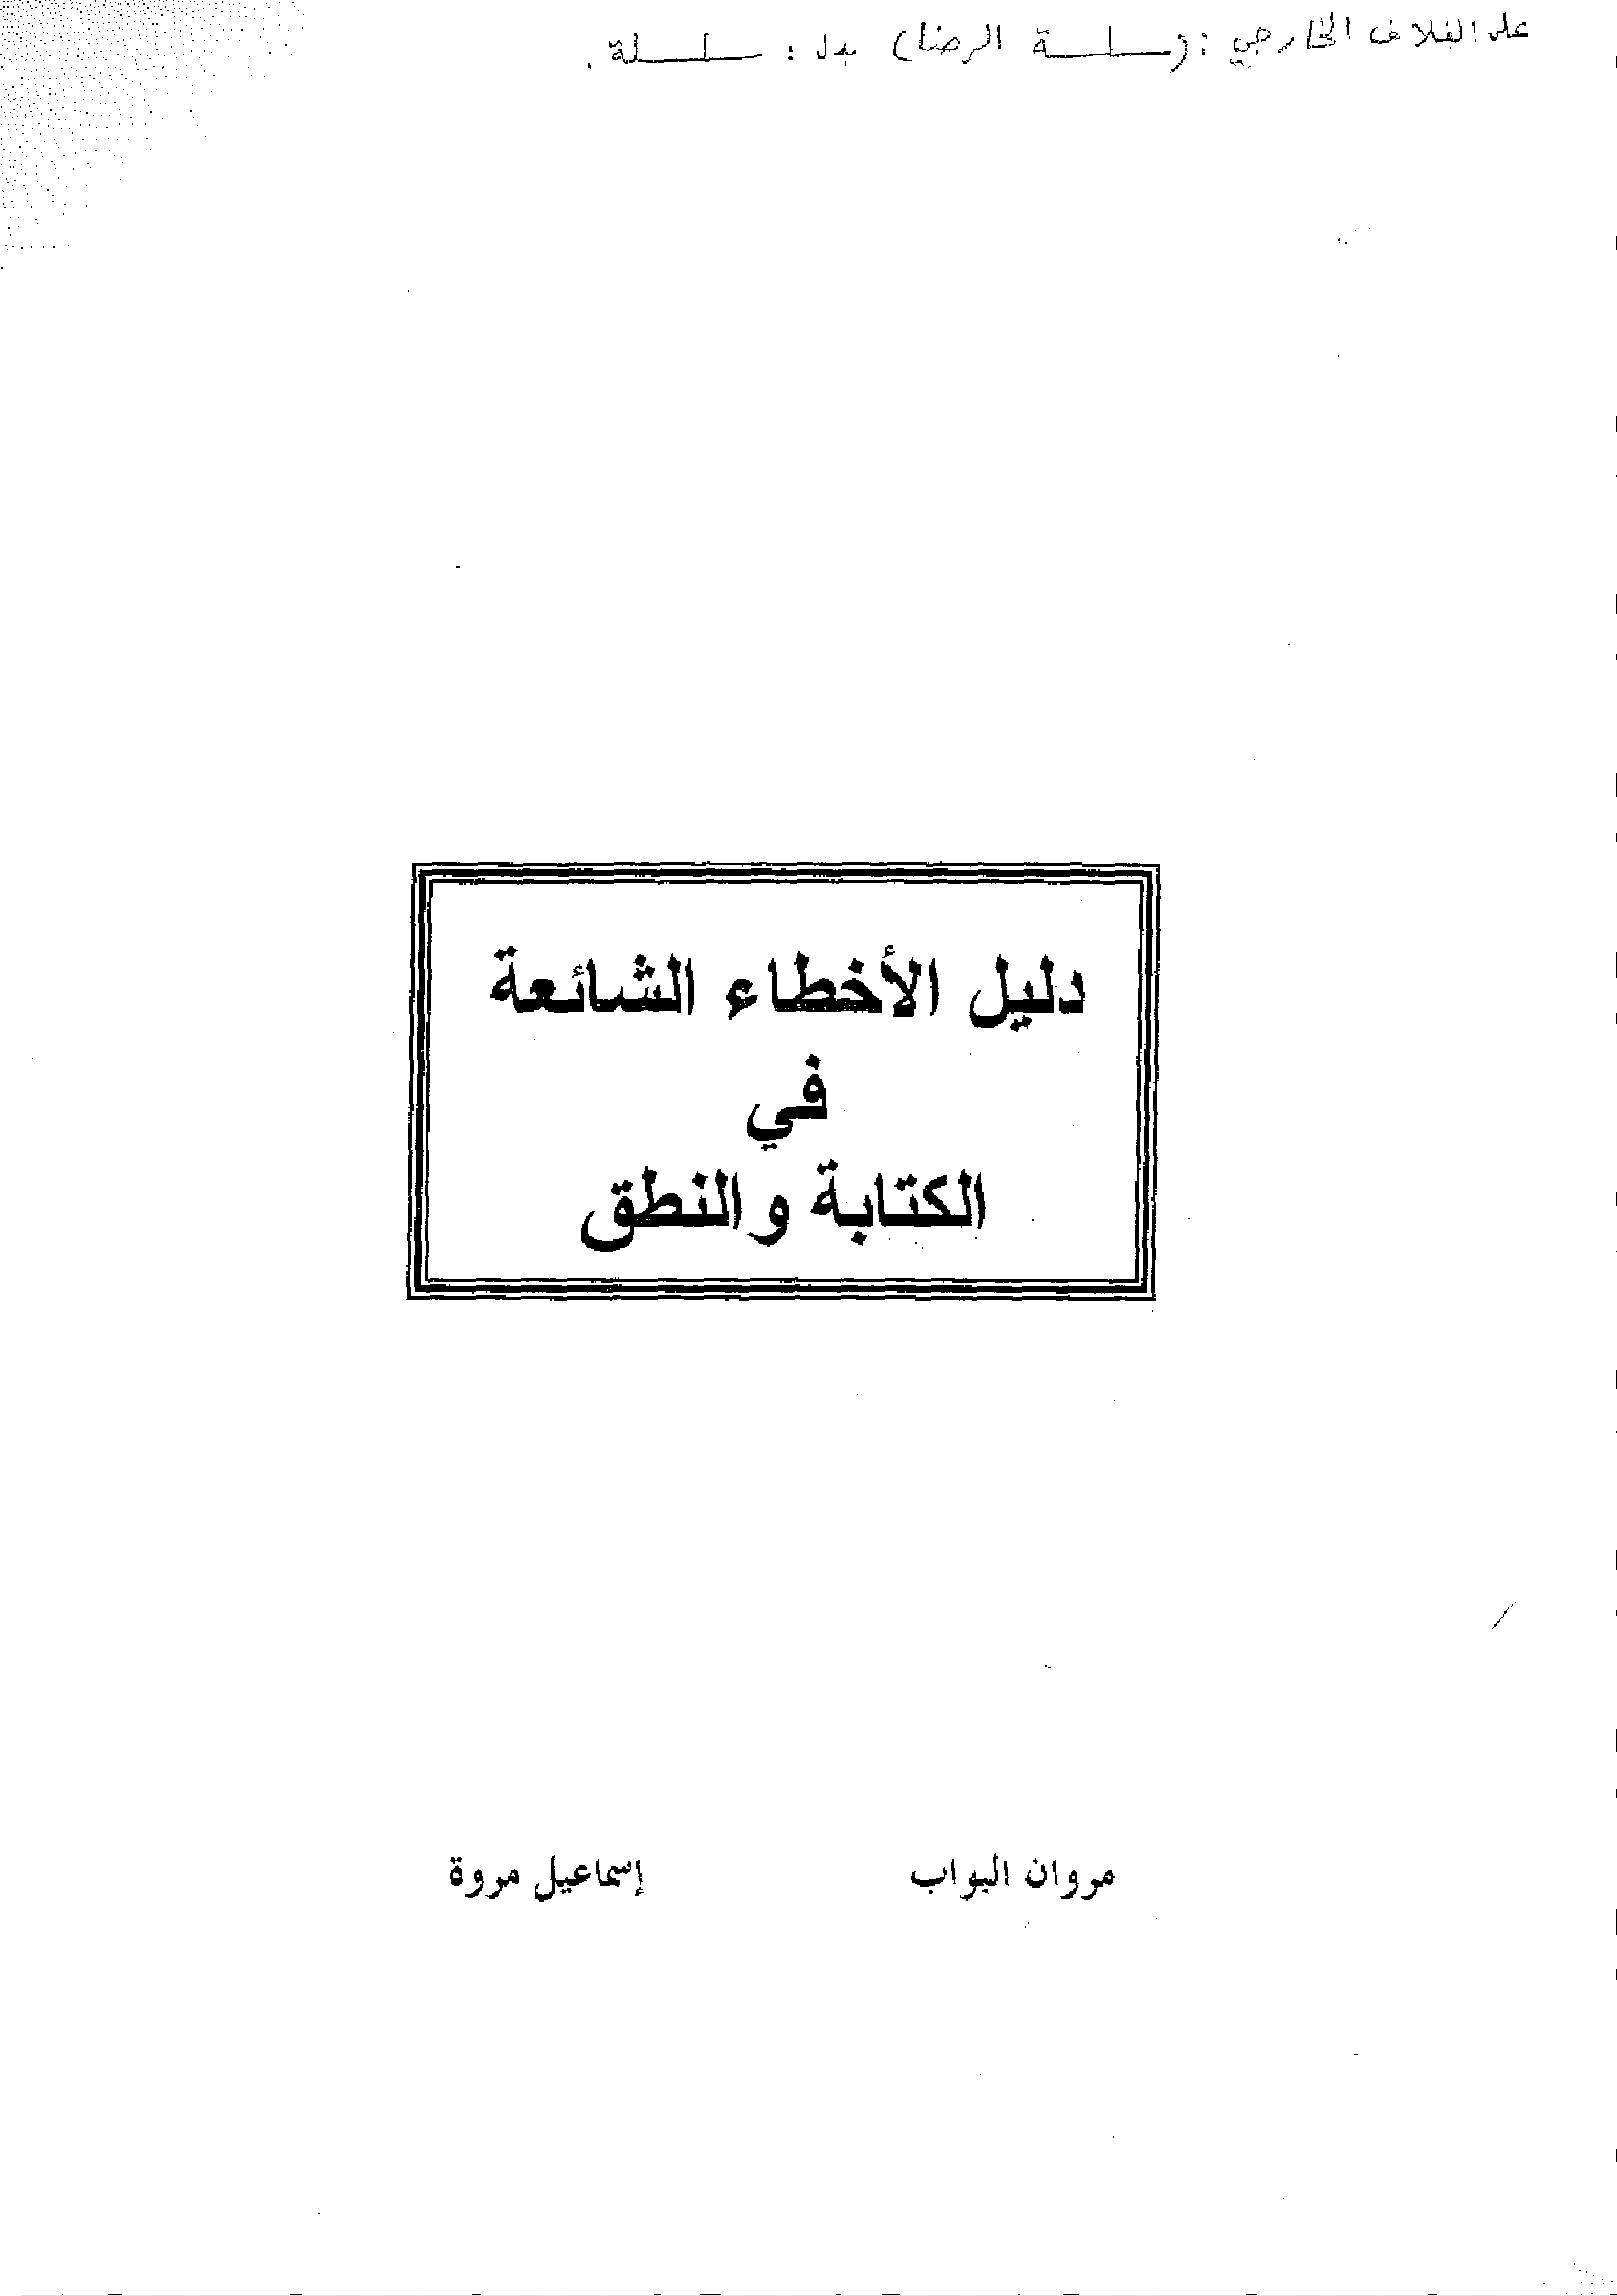 على الغلاف الخارجي : (سلسة الرضا) بدل : سلسلة .
دليل الأخطاء الشائعة
في
الكتابة والنطق
مروان البواب
إسماعيل مروة